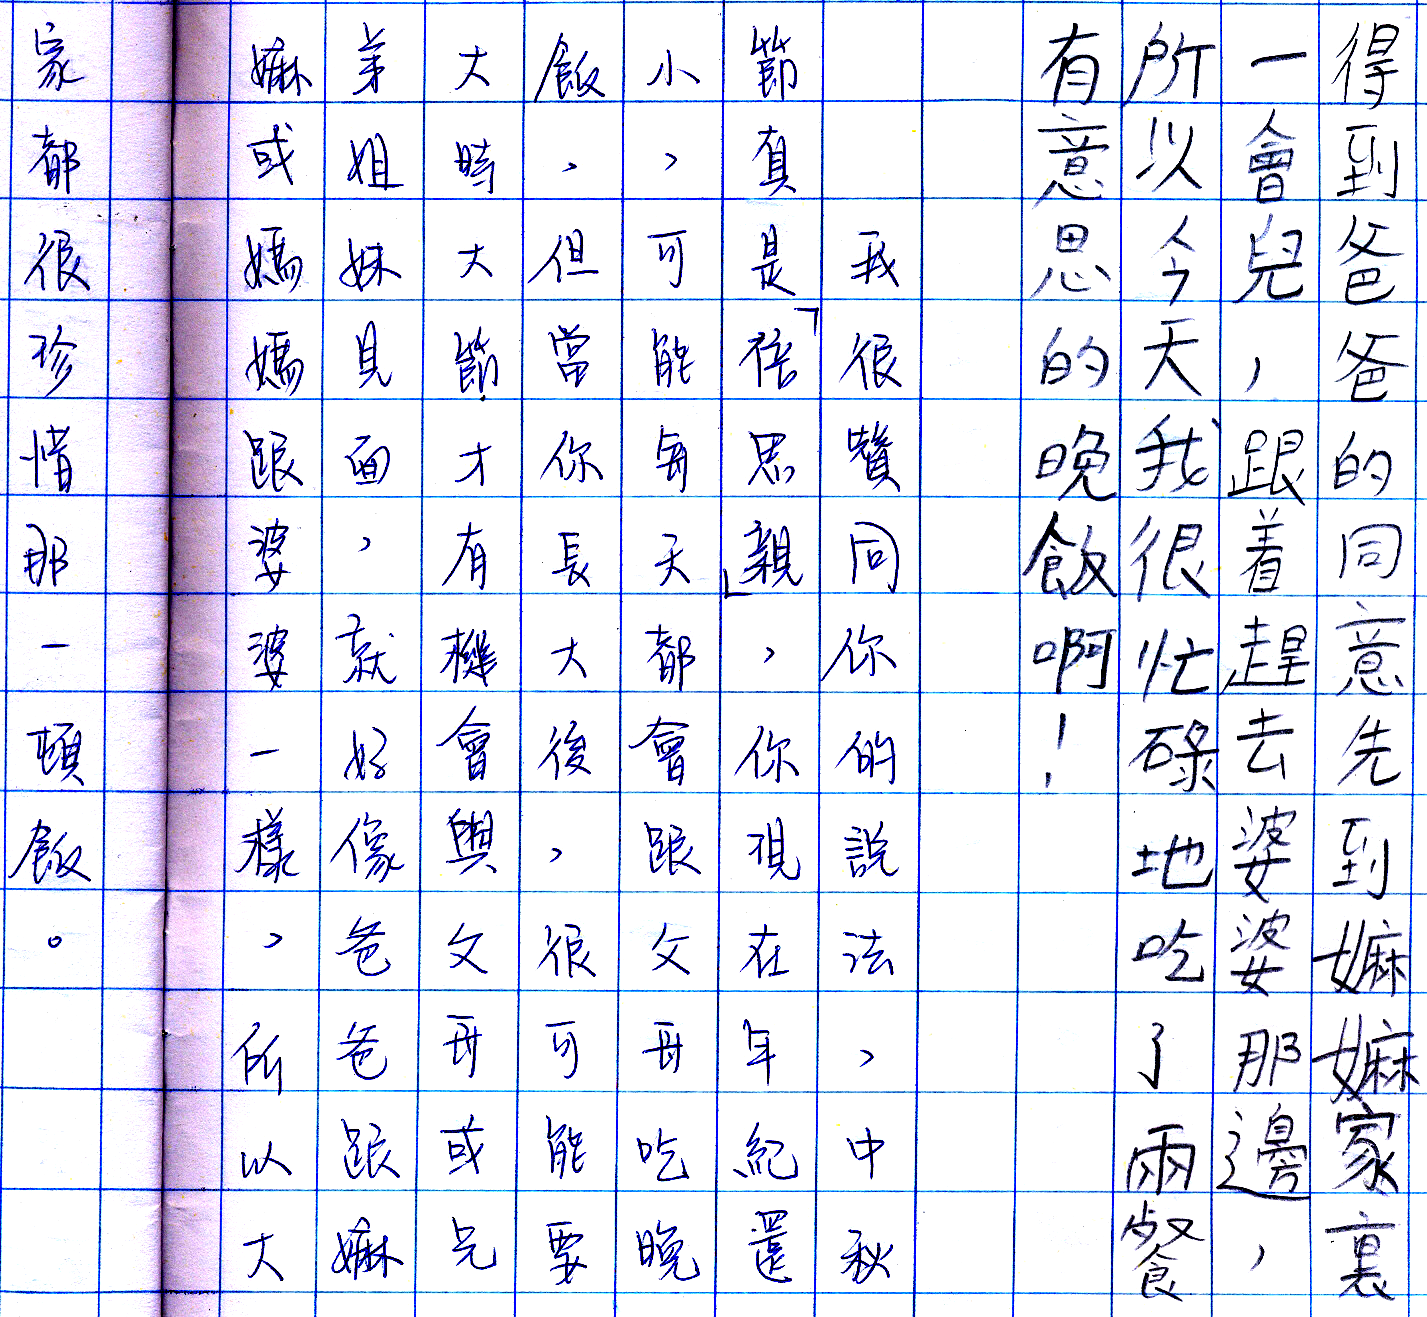 得到爸爸的同意先到嫲嫲家裏
一會兒，跟着趕去婆婆那邊，
所以今天我很忙碌地吃了兩餐
有意思的晚飯啊！
我很贊同你的說法，中秋
節真是「倍思親」，你現在年紀還
小，可能每天都會跟父哥吃晚
飯，但當你長大後，很可能要
大時大節才有機會與父哥或兄
弟姐妹見面，就好像爸爸跟嫲
嫲或媽媽跟婆婆一樣，所以大
家都很珍惜那一頓飯。